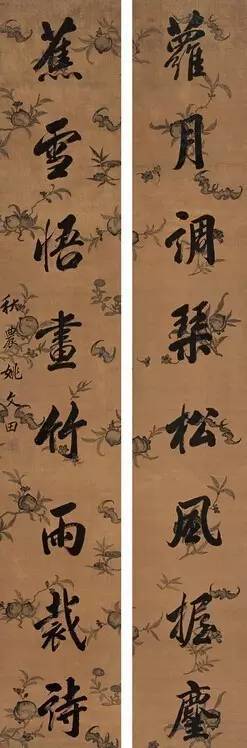 蘿月調琴松風握麈
蕉雪悟畫竹雨裁詩
秋農姚文田